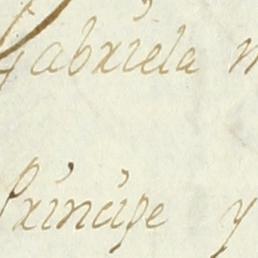 Gabriela
Principe y